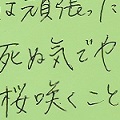 は頑張った
死ぬ気でや
桜咲くこと